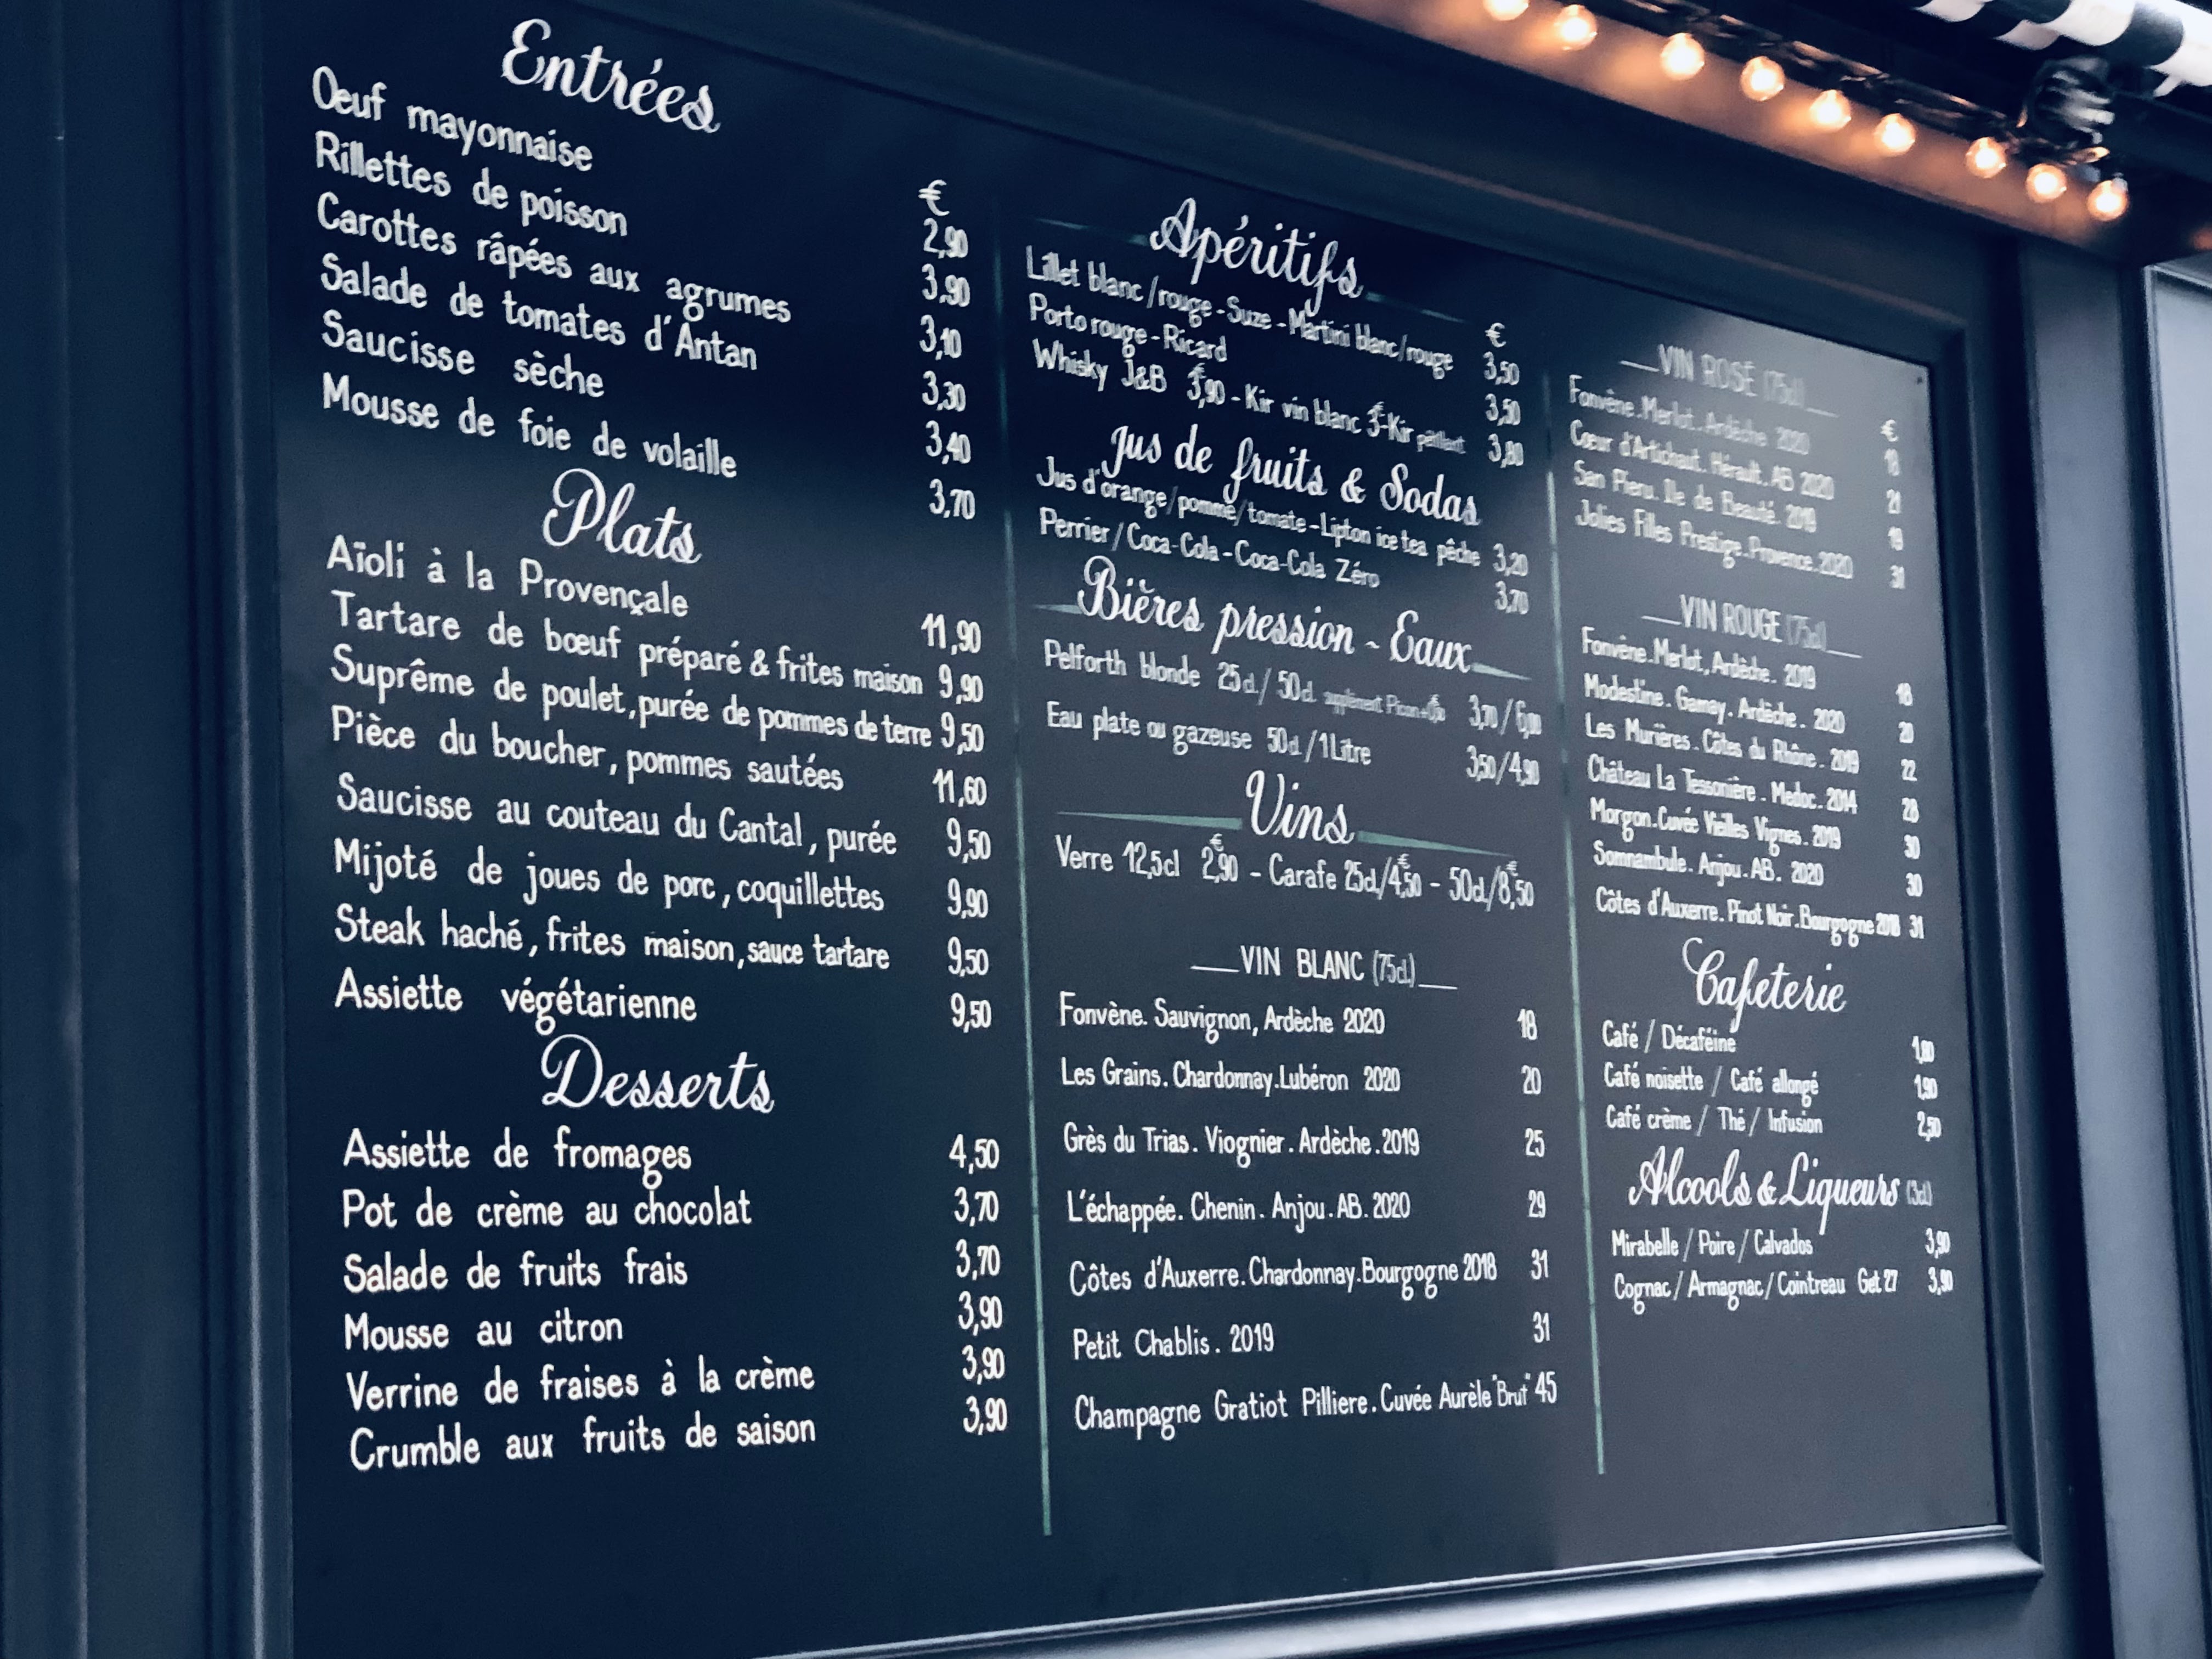 Entrées
€
Œuf mayonnaise 2,90
Rillettes de poisson 3,90
Carottes râpées aux agrumes 3,10
Salade de tomates d'Antan 3,30
Saucisse sèche 3,40
Mousse de foie de volaille 3,70
Plats
Aïoli à la Provençale 11,90
Tartare de bœuf préparé & frites maison 9,90
Suprême de poulet, purée de pommes de terre 9,50
Pièce du boucher, pommes sautées 11,60
Saucisse au couteau du Cantal, purée 9,50
Mijoté de joues de porc, coquillettes 9,90
Steak haché, frites maison, sauce tartare 9,50
Assiette végétarienne 9,50
Desserts
Assiette de fromages 4,50
Pot de crème au chocolat 3,70
Salade de fruits frais 3,70
Mousse au citron 3,90
Verrine de fraises à la crème 3,90
Crumble aux fruits de saison 3,90
Apéritifs
€
Lillet blanc/rouge - Suze - Martini blanc/rouge 3,50
Porto rouge - Ricard 3,50
Whisky J&B 3,90€ - Kir vin blanc 3€ - Kir pétillant 3,80
Jus de fruits & Sodas
Jus d'orange/pomme/tomate - Lipton ice tea pêche 3,20
Perrier/Coca-Cola - Coca-Cola Zéro 3,70
Bières pression - Eaux
Pelforth blonde 25cl/50cl supplément Picon 3,70/6,00
Eau plate ou gazeuse 50cl/1Litre 3,50/4,90
Vins
Verre 12,5cl 2,90€ - Carafe 25cl/4,50€ - 50cl/8,50€
VIN BLANC (75cl.)
Fonvène. Sauvignon, Ardèche 2020 18
Les Grains. Chardonnay. Lubéron 2020 20
Grès du Trias. Viognier. Ardèche. 2019 25
L'échappée. Chenin. Anjou. AB. 2020 29
Côtes d'Auxerre. Chardonnay. Bourgogne 2018 31
Petit Chablis. 2019 31
Champagne Gratiot Pilliere. Cuvée Aurèle "Brut" 45
VIN ROSÉ (75cl)
€
Fonvène. Merlot. Ardèche 2020 18
Cœur d'Artichaut. Hérault. AB 2020 21
San Pieru. Ile de Beauté. 2019 19
Jolies Filles Prestige. Provence. 2020 31
VIN ROUGE (75cl)
Fonvène. Merlot, Ardèche. 2019 18
Modestine. Gamay. Ardèche. 2020 20
Les Murières. Côtes du Rhône. 2019 22
Château La Tessonière. Medoc. 2014 28
Morgon. Cuvée Vieilles Vignes. 2019 30
Somnambule. Anjou. AB. 2020 30
Côtes d'Auxerre. Pinot Noir. Bourgogne 2018 31
Cafeterie
Café / Décaféine 1,80
Café noisette / Café allongé 1,90
Café crème / Thé / Infusion 2,50
Alcools & Liqueurs (3cl)
Mirabelle / Poire / Calvados 3,90
Cognac / Armagnac / Cointreau Get 27 3,90